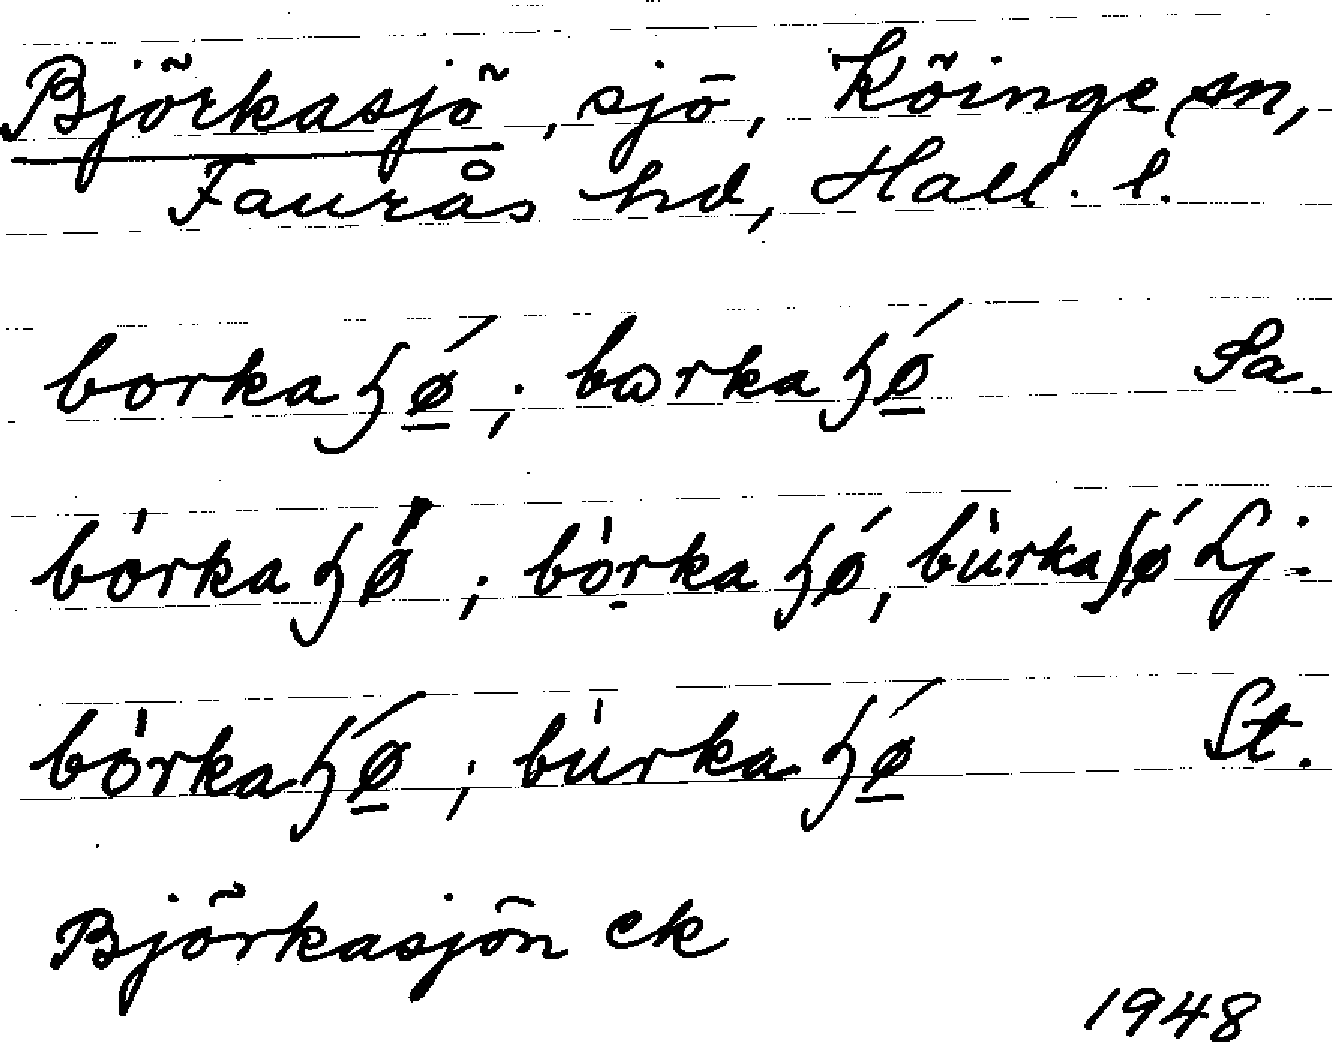 Björkasjö, sjö, Köinge sn,
Faurås hd, Hall. l.
borkaɧǿ; bɷrkaɧǿ Sa.
bòrkaɧǿ; bòrkaɧǿ, bùrkaɧǿ Lj.
bòrkaɧǿ; bùrkaɧǿ St.
Björkasjön ek
1948